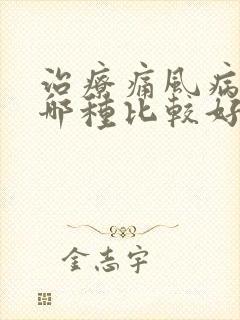 治療痛風病
哪種比較好
金志宇